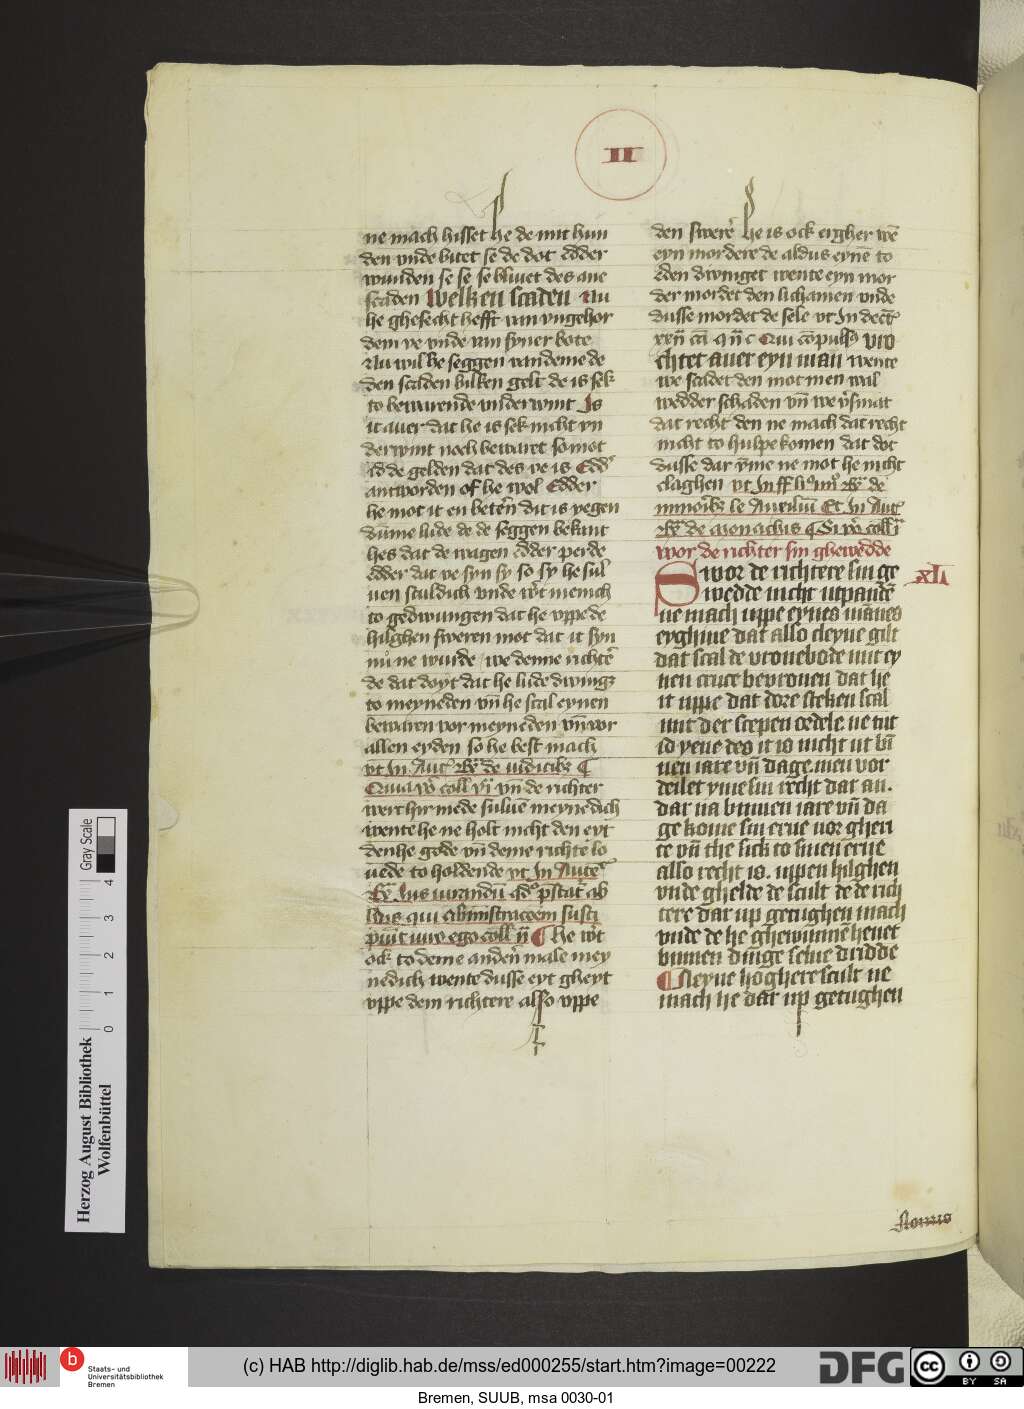 II
ne mach hisset he de mit hun
den vnde bitet se de dot Edder
wunden se se se bliuet des ane
scaden Welken scaden Nu
he ghesecht hefft van vngehor
dem ve vnde van syner bote
Nu wil he seggen van deme de
den scaden bilken gelt de is sek
to bewarende vnderwint Is
it auer dat he is sek nicht vn
derwint noch bewaret so mot
id de gelden dat des ve is Edd'
antworden of he wol Edder
he mot it en beten dit is yegen
dūme lude de de seggen bekant
hes dat de wagen edder perde
edder dat ve syn sy so sy he sul
uen sculdich vnde wert menich
to gedwungen dat he vppe de
hilghen sweren mot dat it syn
ne wurde we denne richte'
de dat doyt dat he lude dwing
to meyneden vn he scal eynen
bewaren vor meyneden vn vor
allen eyden so he best mach
vt In Aut' de iudicibz ¶
Quia coll' vn de richter
wert hir mede suluē meynedich
wente he ne holt nicht den eyt
den he gode vn deme richte lo
uede to holdende vt In Aute'
Ius iurandū qd' pstat' ab
hiis qui amministracoem susci
ego coll' ¶ he wert
ock to deme anden male mey
nedich wente dusse eyt gheyt
vppe dem richtere also vppe
den swere' he is ock ergher we
eyn mordere de aldus eyne to
eden dwinget wente eyn mor
der mordet den lichamen vnde
dusse mordet de sele vt In decr'
Qui cōpuls' Vio
chtet auer eyn man wente
we scadet den mot men wal
wedder schaden vn we v'smat
dat recht den ne mach dat recht
nicht to hulpe komen dat dot
dusse dar v̄me ne mot he nicht
claghen vt In ff de
minorib' Et In Aut'
de monachis ¶ Si coll'
wor de richter sin ghewedde
XLI
Swor de richtere sin ge
wedde nicht utpande
ne mach uppe eynes mānes
eyghine dat also cleyne gilt
dat scal de vronebode mit ey
nen cruce bevronen dat he
it uppe dat dore steken scal
mit der scepen ordele ne tut
id yene des it is nicht ut bī
nen iare vn dage men vor
deilet yme sin recht dar an.
dar na binnen iare vn da
ge kome sin erue vor gheri
te vn the sick to sinen erue
also recht is. uppen hilghen
vnde ghelde de scult de de rich
tere dar up getughen mach
vnde de he ghewūnne heuet
binnen dinge selue dridde
¶ Neyne hoghere scult ne
mach he dar up getughen
Herzog August Bibliothek
Wolfenbüttel
0 1 2 3 4
Gray Scale
b
Staats- und
Universitätsbibliothek
Bremen
(c) HAB http://diglib.hab.de/mss/ed000255/start.htm?image=00222
DFG
cc
BY SA
Bremen, SUUB, msa 0030-01